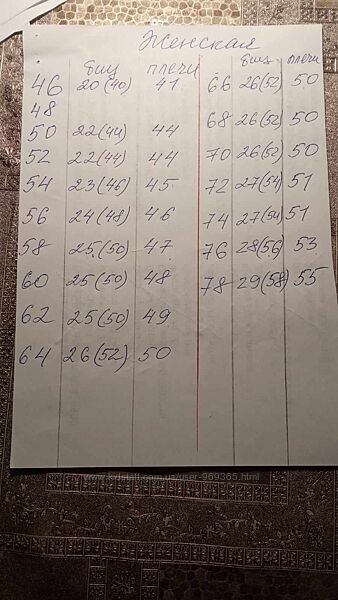 Женская
биц плечи биц плечи
46 20 (40) 41 66 26 (52) 50
48
50 22 (44) 44 68 26 (52) 50
52 22 (44) 44 70 26 (52) 50
54 23 (46) 45 72 27 (54) 51
56 24 (48) 46 74 27 (54) 51
58 25 (50) 47 76 28 (56) 53
60 25 (50) 48 78 29 (58) 55
62 25 (50) 49
64 26 (52) 50